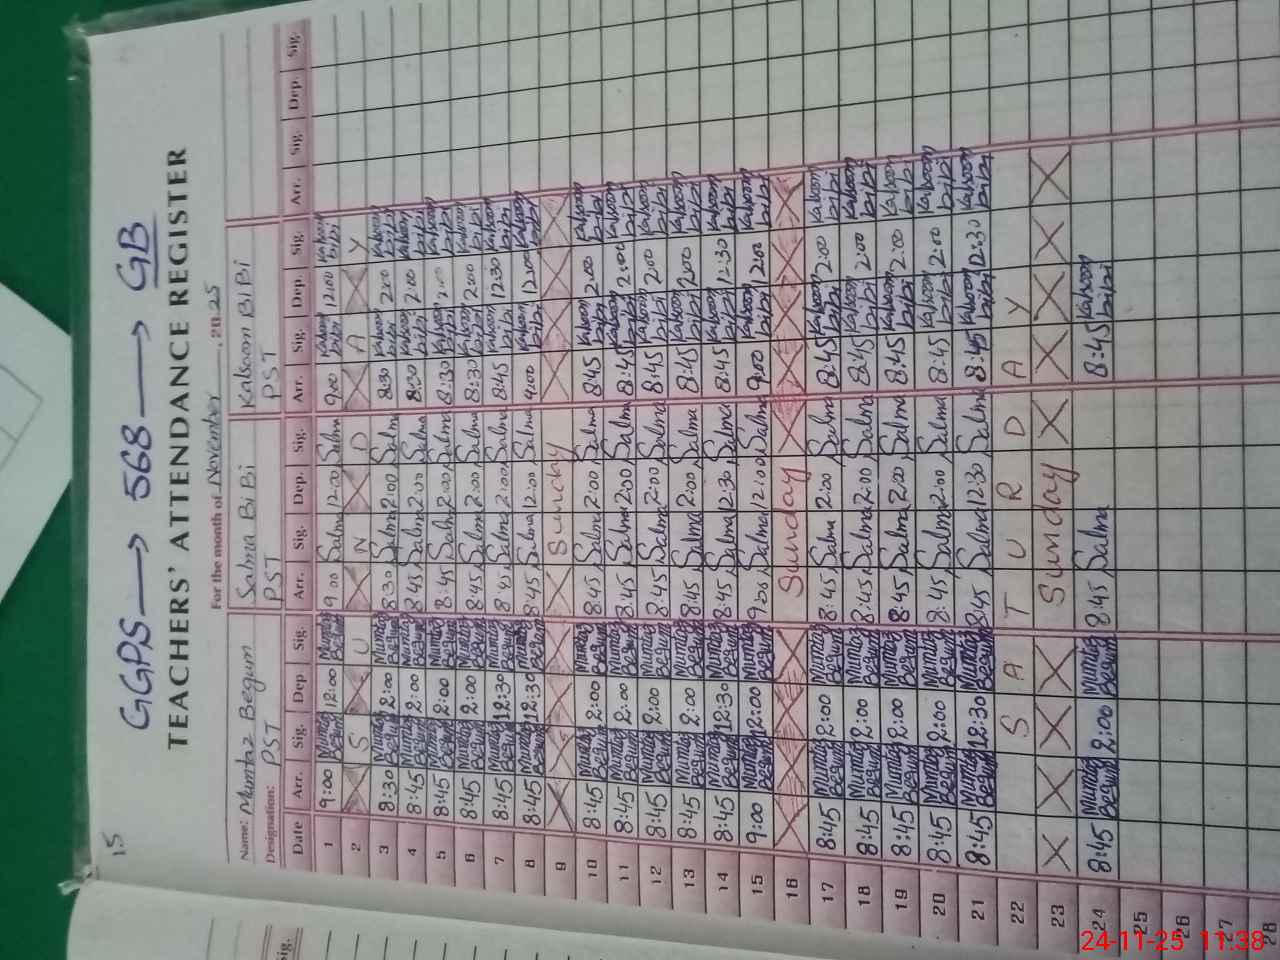 15
GGPS → 568 → GB
TEACHERS' ATTENDANCE REGISTER
For the month of November, 2025
Name: Mumtaz Begum Salma BiBi Kalsoom BiBi
Designation: PST PST PST
Date Arr. Sig. Dep. Sig. Arr. Sig. Dep. Sig. Arr. Sig. Dep. Sig. Arr. Sig. Dep. Sig.
1 9:00 Mumtaz Begum 12:00 Mumtaz Begum 9:00 Salma 12:00 Salma 9:00 Kalsoom bibi 12:00 Kalsoom bibi
2 S U N D A Y
3 8:30 Mumtaz Begum 2:00 Mumtaz Begum 8:30 Salma 2:00 Salma 8:30 Kalsoom bibi 2:00 Kalsoom bibi
4 8:45 Mumtaz Begum 2:00 Mumtaz Begum 8:45 Salma 2:00 Salma 8:30 Kalsoom bibi 2:00 Kalsoom bibi
5 8:45 Mumtaz Begum 2:00 Mumtaz Begum 8:45 Salma 2:00 Salma 8:30 Kalsoom bibi 2:00 Kalsoom bibi
6 8:45 Mumtaz Begum 2:00 Mumtaz Begum 8:45 Salma 2:00 Salma 8:30 Kalsoom bibi 2:00 Kalsoom bibi
7 8:45 Mumtaz Begum 12:30 Mumtaz Begum 8:45 Salma 2:00 Salma 8:45 Kalsoom bibi 12:30 Kalsoom bibi
8 8:45 Mumtaz Begum 12:30 Mumtaz Begum 8:45 Salma 12:00 Salma Kalsoom bibi 12:00 Kalsoom bibi
9 Sunday
10 8:45 Mumtaz Begum 2:00 Mumtaz Begum 8:45 Salma 2:00 Salma 8:45 Kalsoom bibi 2:00 Kalsoom bibi
11 8:45 Mumtaz Begum 2:00 Mumtaz Begum 8:45 Salma 2:00 Salma 8:45 Kalsoom bibi 2:00 Kalsoom bibi
12 8:45 Mumtaz Begum 2:00 Mumtaz Begum 8:45 Salma 2:00 Salma 8:45 Kalsoom bibi 2:00 Kalsoom bibi
13 8:45 Mumtaz Begum 2:00 Mumtaz Begum 8:45 Salma 2:00 Salma 8:45 Kalsoom bibi 2:00 Kalsoom bibi
14 8:45 Mumtaz Begum 12:30 Mumtaz Begum 8:45 Salma 12:30 Salma 8:45 Kalsoom bibi 12:30 Kalsoom bibi
15 9:00 Mumtaz Begum 12:00 Mumtaz Begum 9:00 Salma 12:00 Salma 9:00 Kalsoom bibi 12:00 Kalsoom bibi
16 Sunday
17 8:45 Mumtaz Begum 2:00 Mumtaz Begum 8:45 Salma 2:00 Salma 8:45 Kalsoom bibi 2:00 Kalsoom bibi
18 8:45 Mumtaz Begum 2:00 Mumtaz Begum 8:45 Salma 2:00 Salma 8:45 Kalsoom bibi 2:00 Kalsoom bibi
19 8:45 Mumtaz Begum 2:00 Mumtaz Begum 8:45 Salma 2:00 Salma 8:45 Kalsoom bibi 2:00 Kalsoom bibi
20 8:45 Mumtaz Begum 2:00 Mumtaz Begum 8:45 Salma 2:00 Salma 8:45 Kalsoom bibi 2:00 Kalsoom bibi
21 8:45 Mumtaz Begum 12:30 Mumtaz Begum 8:45 Salma 12:30 Salma 8:45 Kalsoom bibi 12:30 Kalsoom bibi
22 S A T U R D A Y
23 Sunday
24 8:45 Mumtaz Begum 2:00 Mumtaz Begum 8:45 Salma 8:45 Kalsoom bibi
25
26
27
28
Sig.
24-11-25 11:38